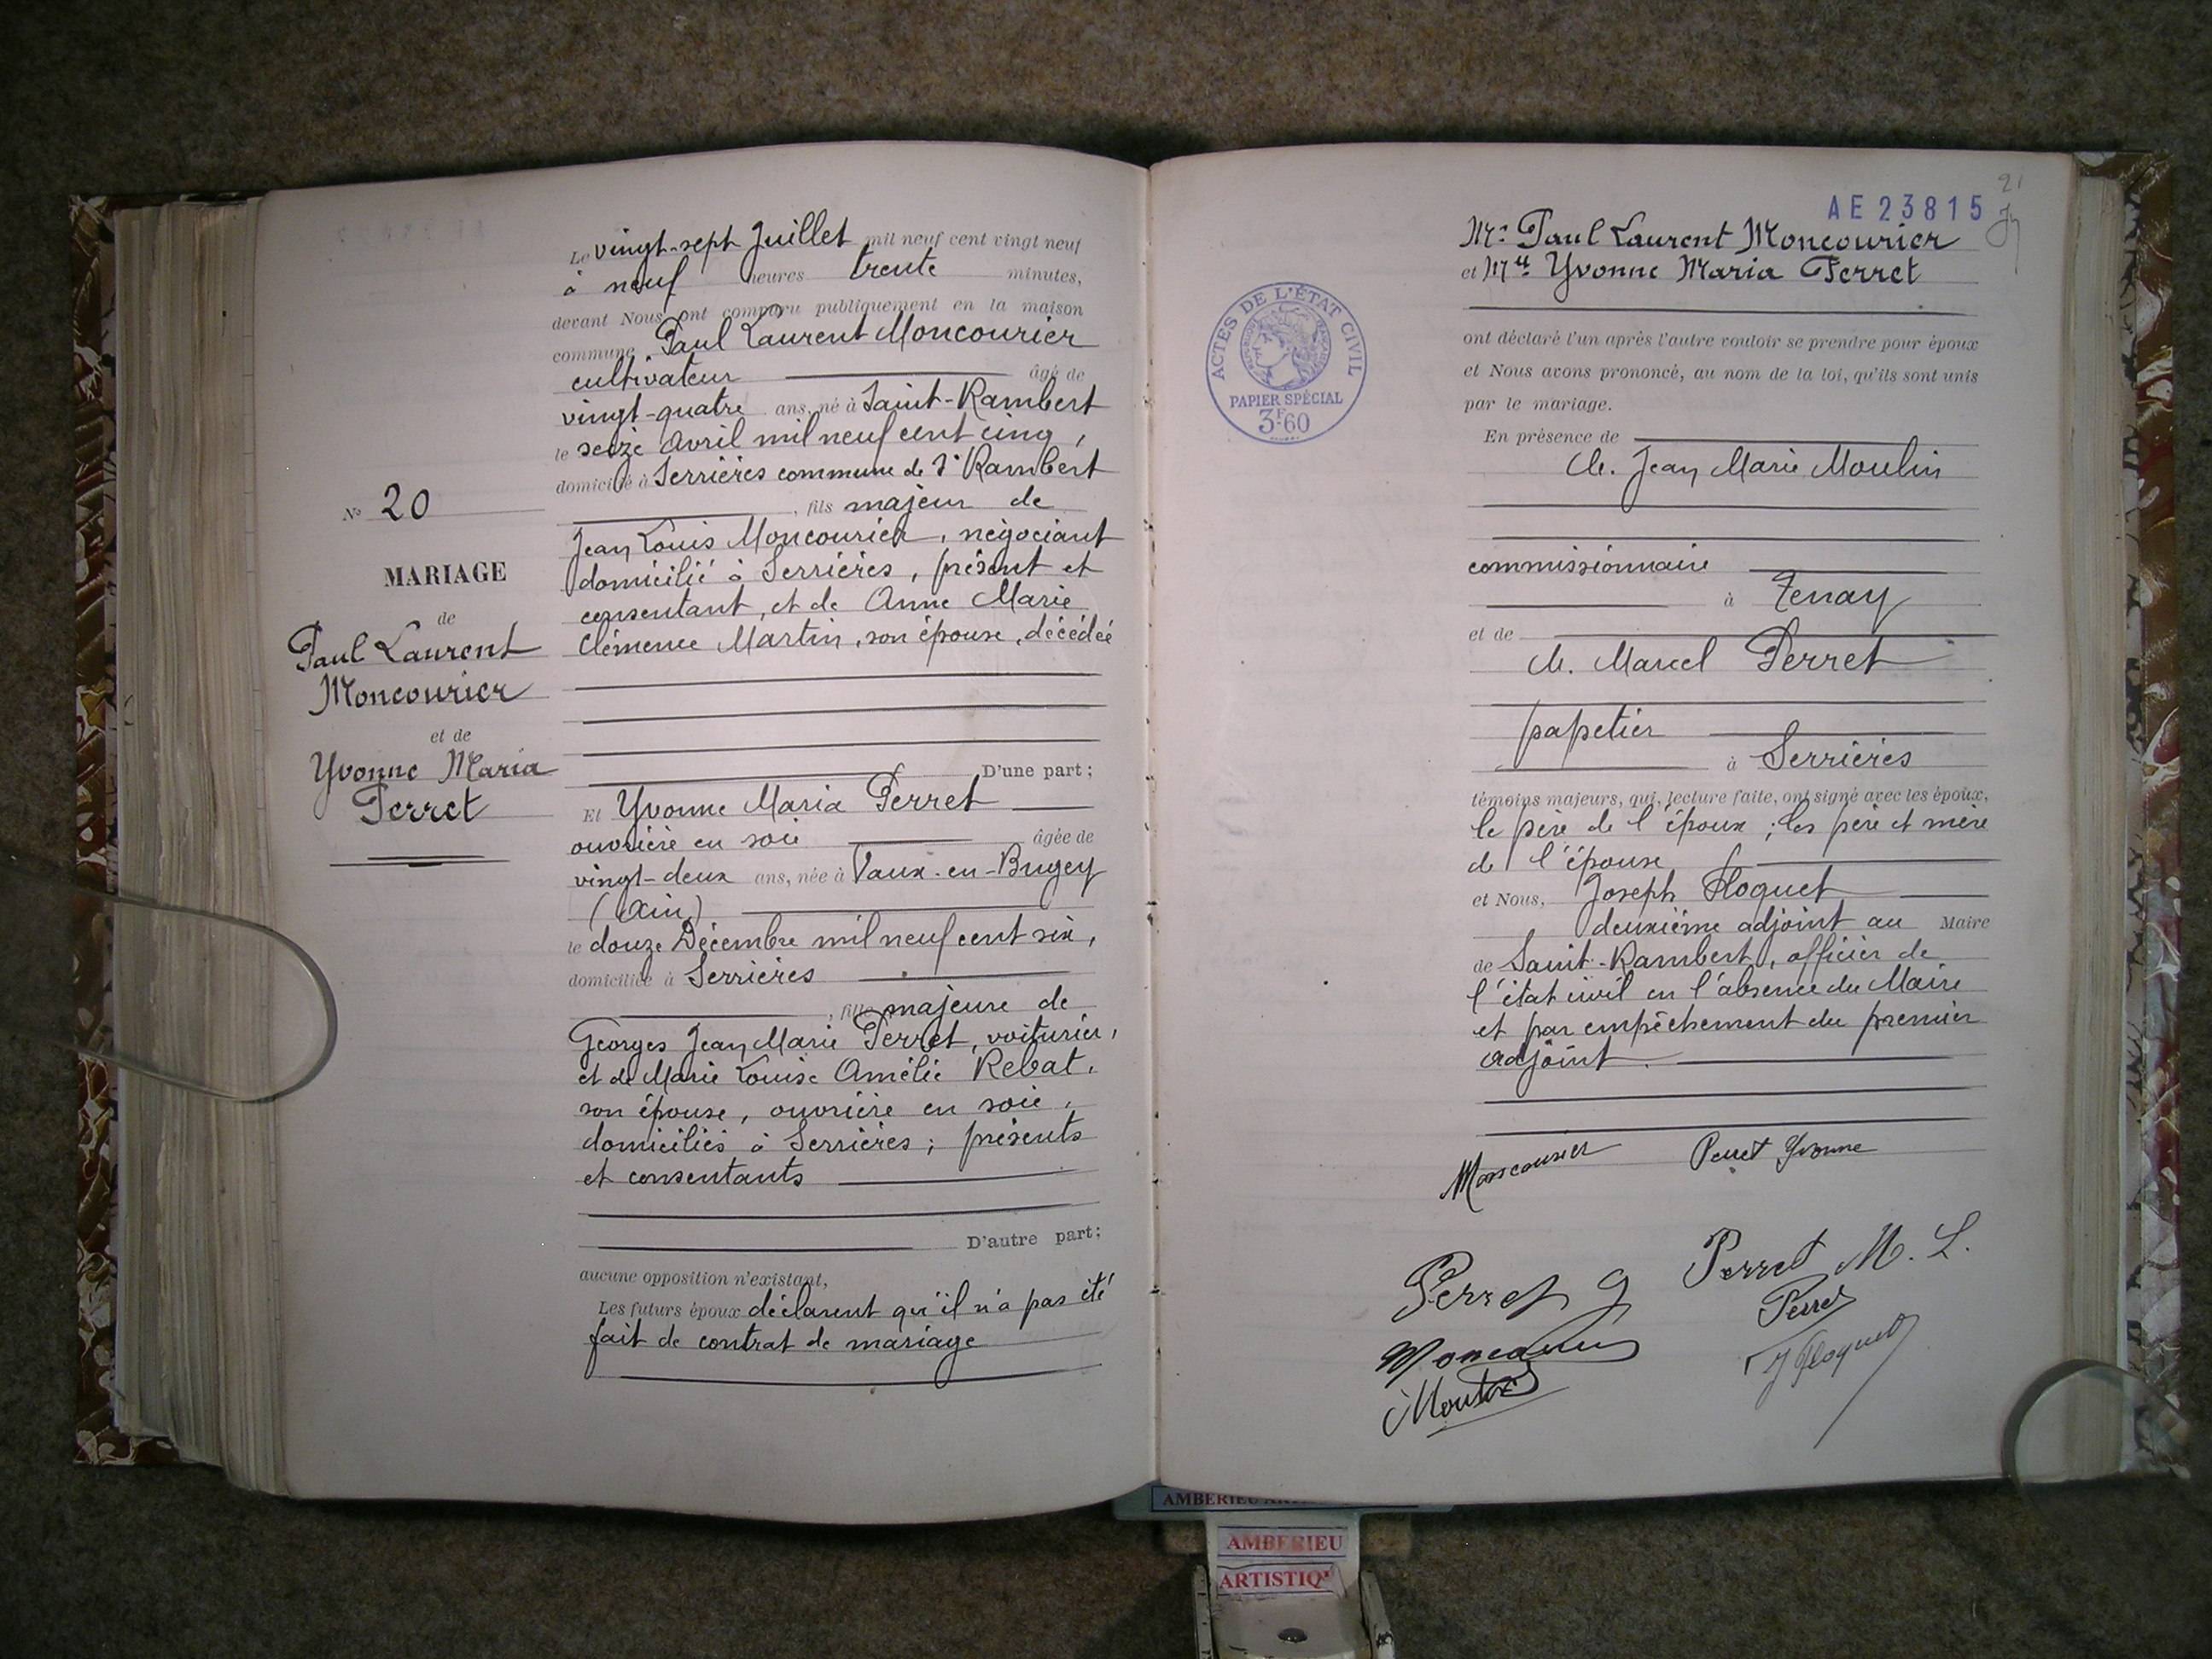 N° 20
MARIAGE
de
Paul Laurent
Moncourier
et de
Yvonne Maria
Perret
Le vingt-sept Juillet mil neuf cent vingt neuf
à neuf heures trente minutes,
devant Nous ont comparu publiquement en la maison
commune Paul Laurent Moncourier
cultivateur âgé de
vingt-quatre ans, né à Saint-Rambert
le seize avril mil neuf cent cinq,
domicilié à Serrières commune de St Rambert
, fils majeur de
Jean Louis Moncourier, négociant
domicilié à Serrières, présent et
consentant, et de Anne Marie
Clémence Martin, son épouse, décédée
D'une part;
Et Yvonne Maria Perret
ouvrière en soie âgée de
vingt-deux ans, née à Vaux-en-Bugey
(Ain)
le douze Décembre mil neuf cent six,
domiciliée à Serrières
, fille majeure de
Georges Jean Marie Perret, voiturier,
et de Marie Louise Amélie Rebat,
son épouse, ouvrière en soie,
domiciliés à Serrières; présents
et consentants
D'autre part;
aucune opposition n'existant,
Les futurs époux déclarent qu'il n'a pas été
fait de contrat de mariage
21
AE 23815
Mr Paul Laurent Moncourier
et Mlle Yvonne Maria Perret
ACTES DE L'ÉTAT CIVIL
RÉPUBLIQUE FRANÇAISE
PAPIER SPÉCIAL
3F60
ont déclaré l'un après l'autre vouloir se prendre pour époux
et Nous avons prononcé, au nom de la loi, qu'ils sont unis
par le mariage.
En présence de
M. Jean Marie Moulin
commissionnaire
à Tenay
et de
M. Marcel Perret
papetier
à Serrières
témoins majeurs, qui, lecture faite, ont signé avec les époux,
le père de l'époux; les père et mère
de l'épouse
et Nous, Joseph Floquet
deuxième adjoint au Maire
de Saint-Rambert, officier de
l'état civil en l'absence du Maire
et par empêchement du premier
adjoint.
Moncourier Perret Yvonne
Perret G Perret M. L.
Perret
Moncourier J Floquet
Moulin
AMBERIEU
AMBERIEU
ARTISTIQ